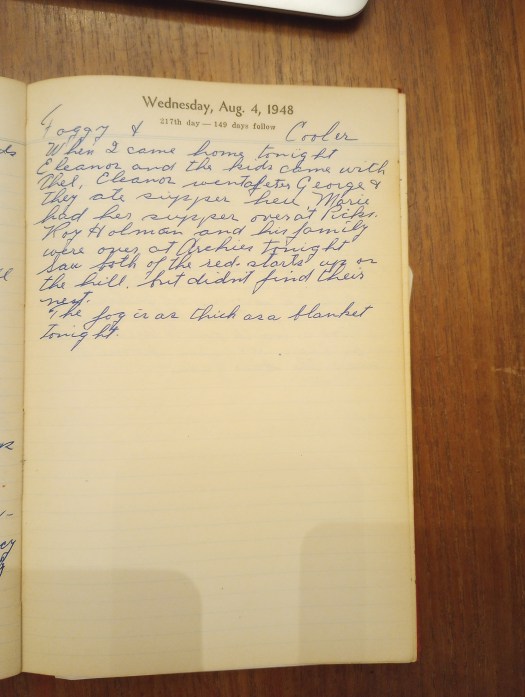 Wednesday, Aug. 4, 1948
217th day — 149 days follow
Foggy & Cooler
When I came home tonight
Eleanor and the kids came with
Thel, Eleanor went after George &
they ate supper here, Marie
had her supper over at Ricks.
Roy Holman and his family
were over at Archies tonight
Saw both of the red-starts up on
the hill, but didn't find their
nest.
The fog is as thick as a blanket
tonight.